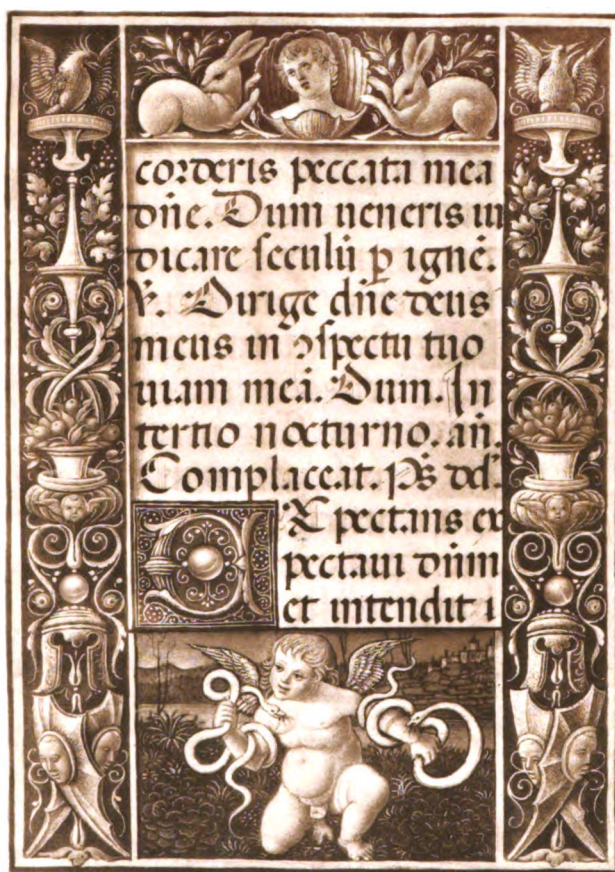 corderis peccata mea
dñe. Dum ueneris iu
dicare seculũ ꝑ ignẽ.
℣. Dirige dñe deus
meus in ꝯspectu tuo
uiam meã. Dum. In
tertio nocturno. añ.
Complaceat. p̃s dd̃.
EX pectans ex
pectaui dñm
et intendit i